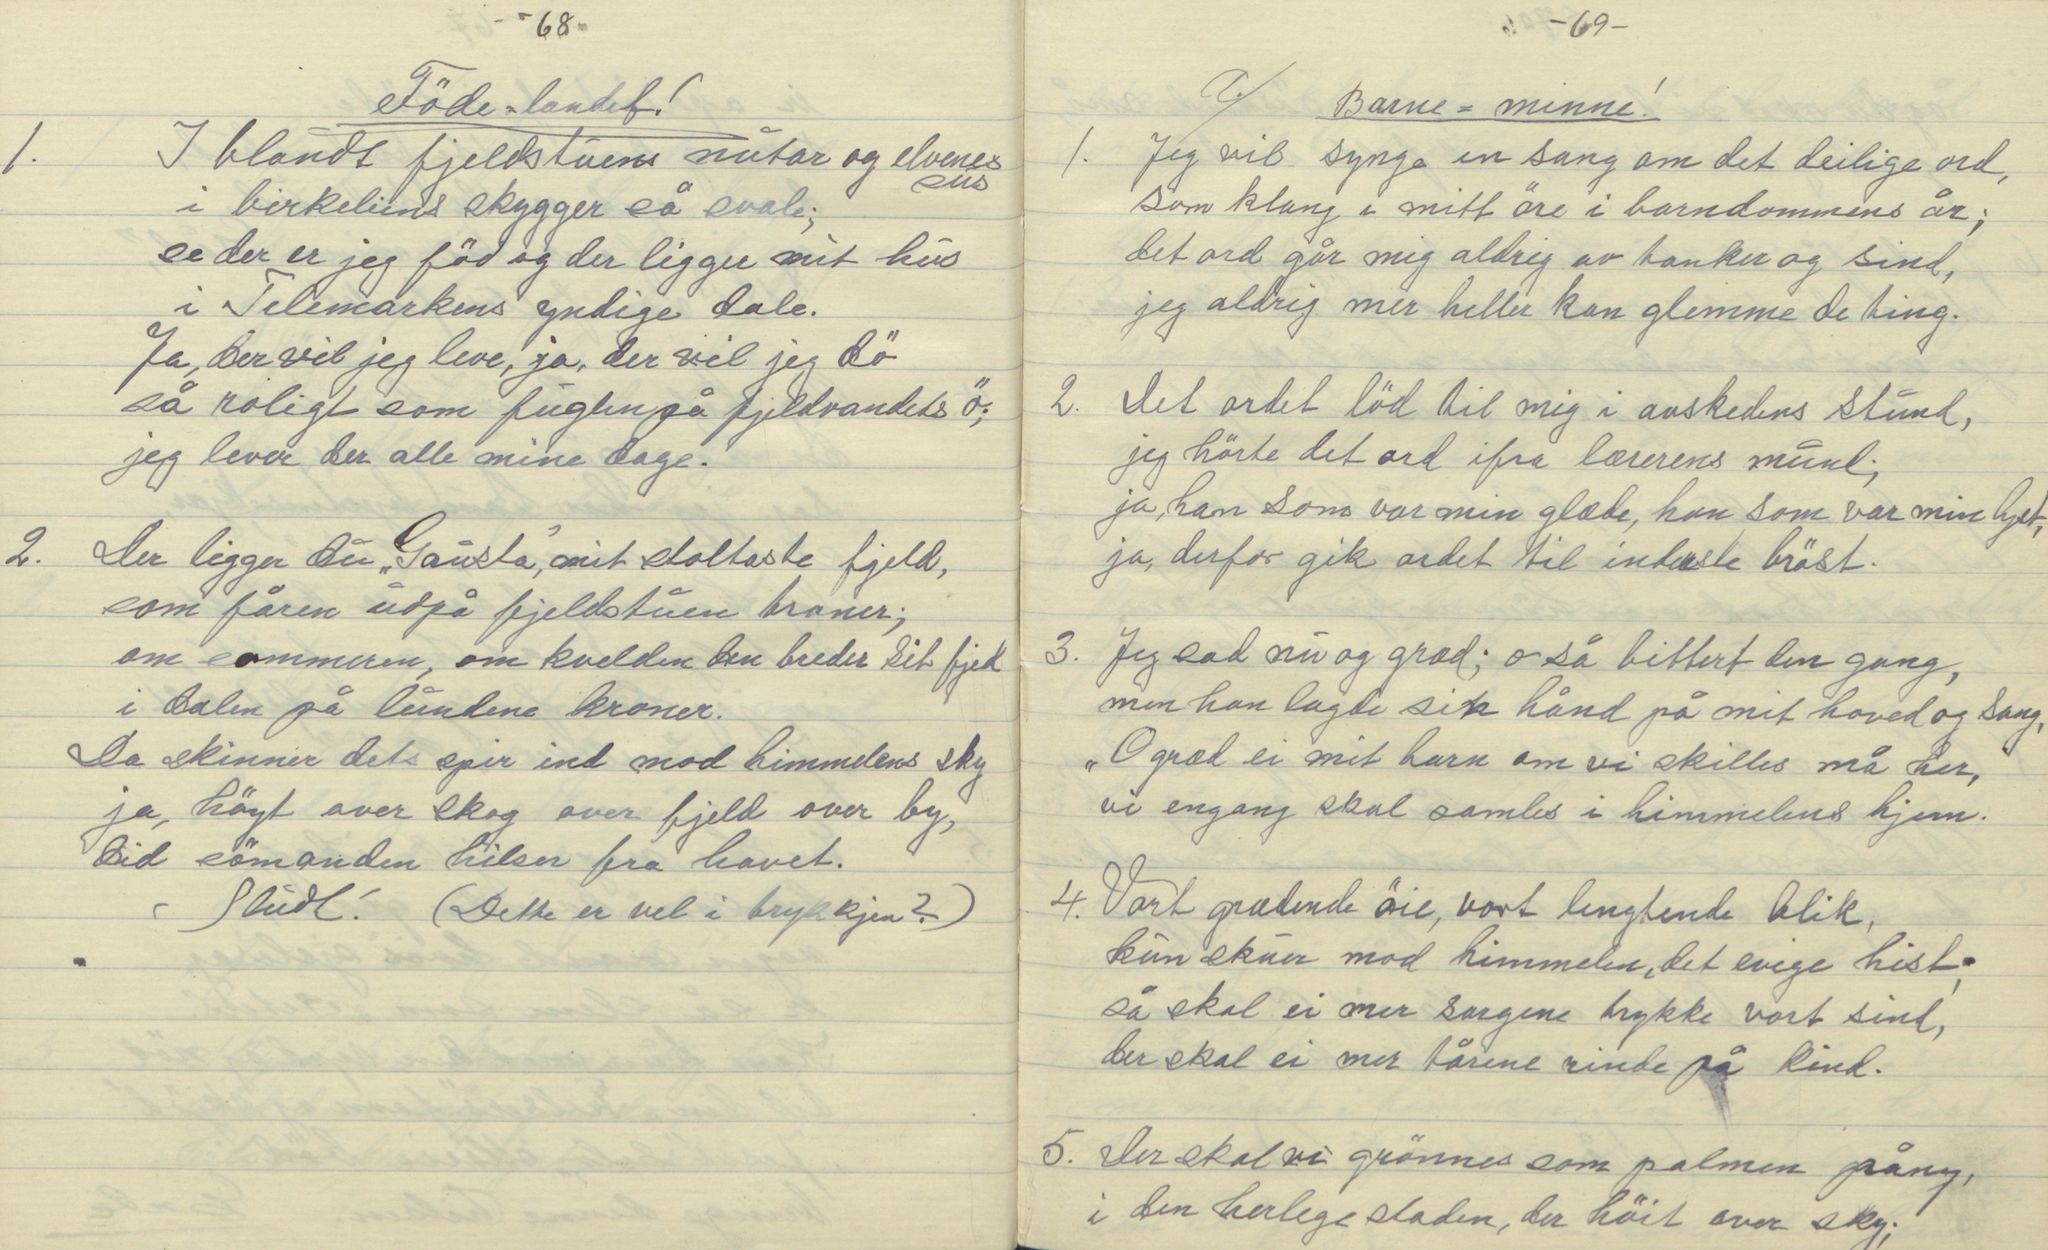 - 68 -
Föde-landet!
1. I blandt fjeldstuens nutar og elvenes sus
i birkeliens skygger så svale;
se der er jeg föd og der ligger mit hus
i Telemarkens yndige dale.
Ja, der vil jeg leve, ja, der vil jeg dö
så roligt som fuglen på fjeldvandets ö;
jeg lever der alle mine dage.
2. Der ligger du „Gausta", mit stoltaste fjeld,
som fåren udpå fjeldstuen troner;
om sommeren, om kvelden den breder sit fjed
i dalen på lundene kroner.
Da skinner dets spir ind mod himmelens sky
ja, höyt over skog over fjeld over by,
did sömanden hilser fra havet.
Sludt! (Dette er vel i trykkjen?)
- 69 -
Barne-minne!
1. Jeg vil synge en sang om det deilige ord,
som klang i mitt öre i barndommens år;
det ord går mig aldrig av tanker og sind,
jeg aldrig mer heller kan glemme de ting.
2. Det ordet löd til mig i avskedens stund,
jeg hörte det ord ifra lærerens mund;
ja, han som var min glæde, han som var min lyst,
ja, derfor gik ordet til inderste bröst.
3. Jeg sad nu og græd; o så bittert den gang,
men han lagde sin hånd på mit hoved og sang,
„O græd ei mit barn om vi skilles må her,
vi engang skal samles i himmelens hjem.
4. Vort grædende öie, vort lengtende blik,
kun skuer mod himmelen, det evige hist;
så skal ei mer sorgene trykke vort sind,
der skal ei mer tårene rinde på kind.
5. Der skal vi grönnes som palmen påny,
i den herlege staden, der höit over sky;